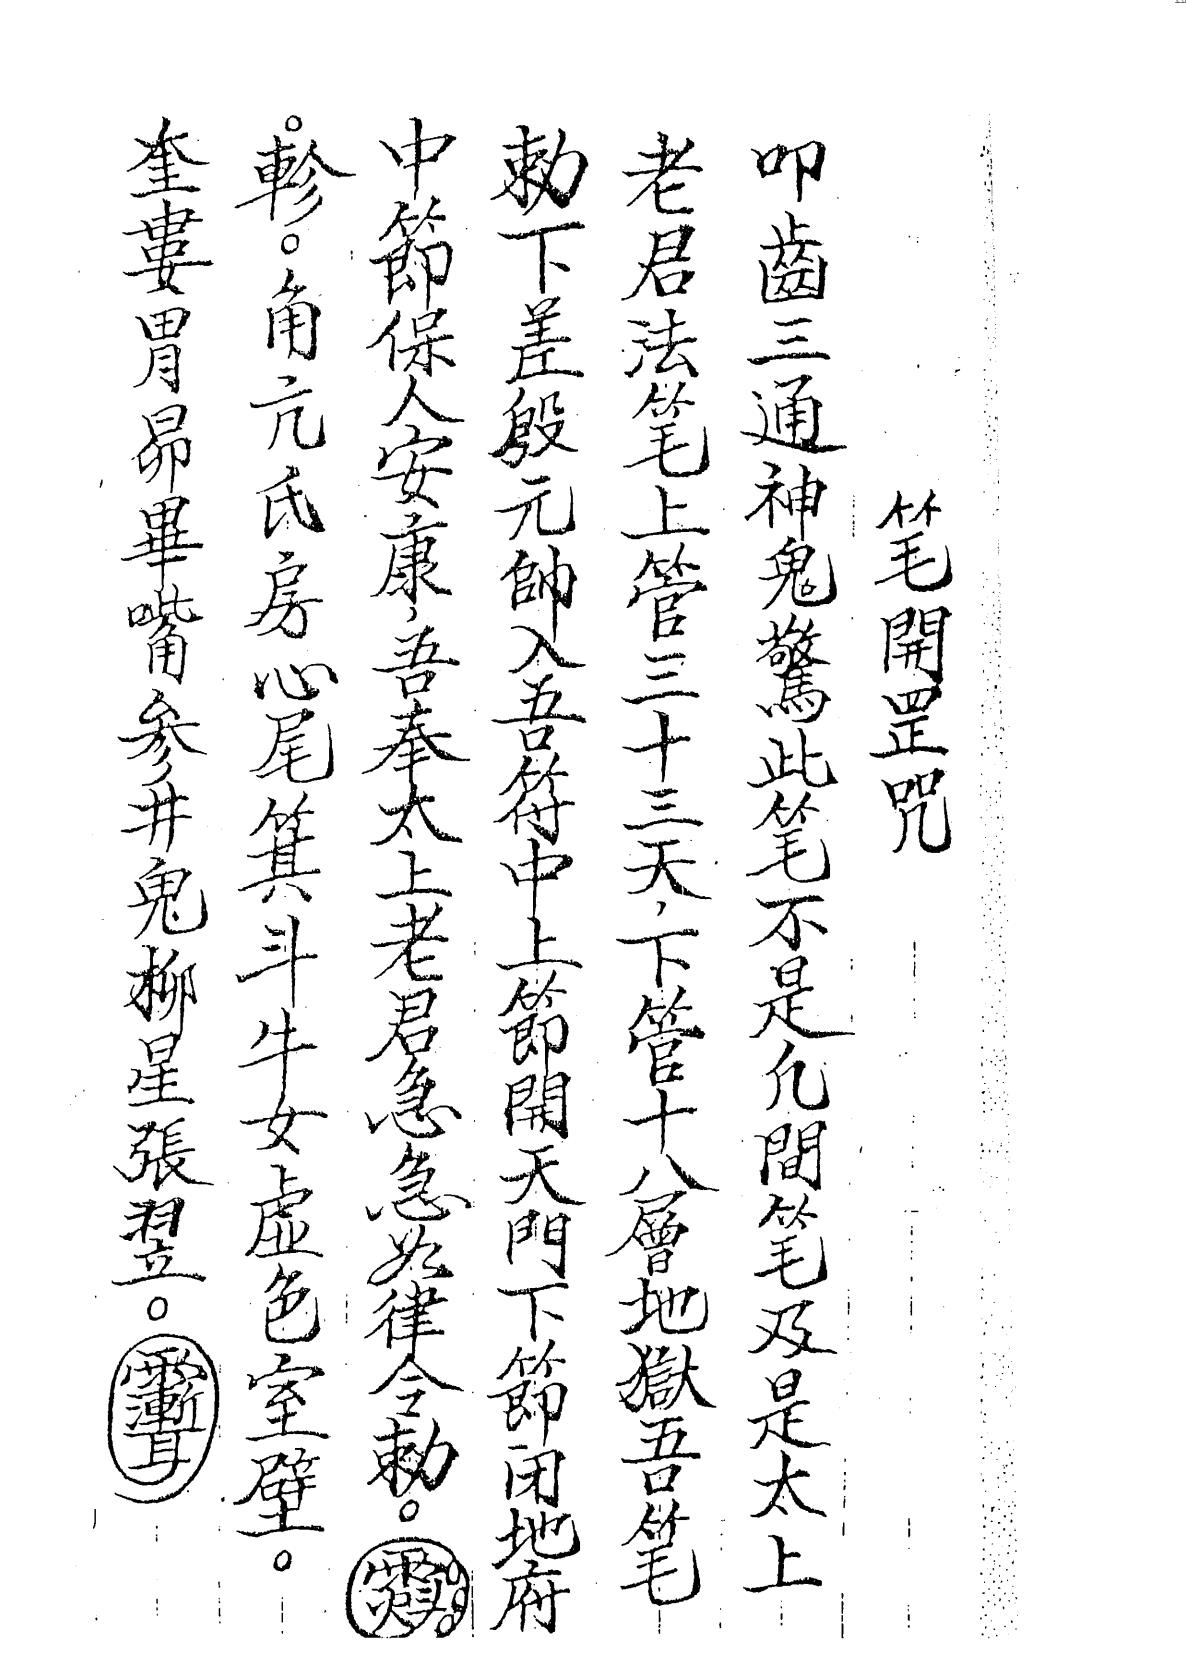 笔開罡咒
叩齒三通神鬼驚此笔不是凣間笔及是太上
老君法笔上管三十三天、下管十八層地獄吾笔
勅下差殷元帥入吾符中上節開天門下節闭地府
中節保人安康、吾奉太上老君急急如律令勅。
。軫。角亢氐房心尾箕斗牛女虛色室壁。
奎婁胃昴畢嘴参井鬼柳星張翌。